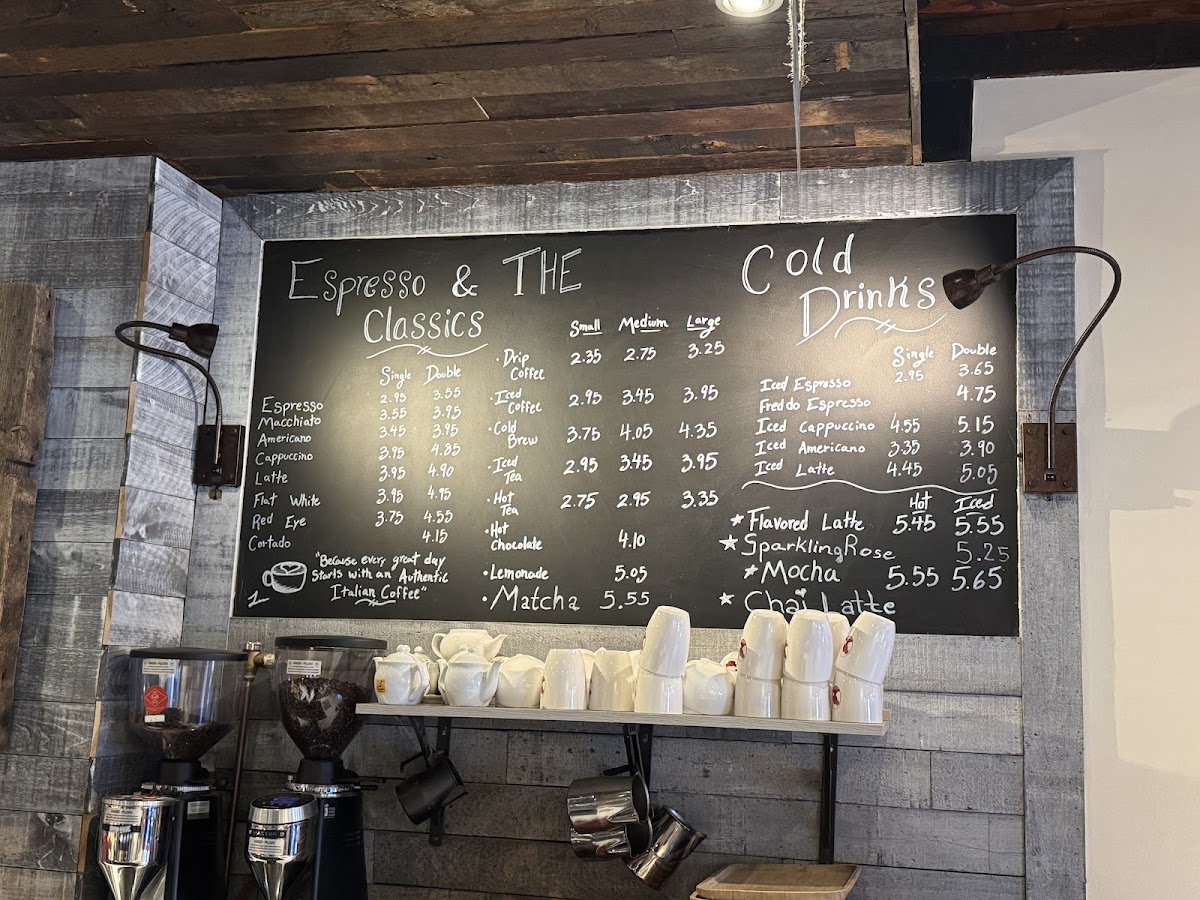 Espresso & THE
Classics
Single Double
Espresso 2.95 3.55
Macchiato 3.55 3.95
Americano 3.45 3.95
Cappuccino 3.95 4.85
Latte 3.95 4.90
Flat White 3.95 4.95
Red Eye 3.75 4.55
Cortado 4.15
"Because every great day
Starts with an Authentic
Italian Coffee"
Small Medium Large
• Drip
Coffee 2.35 2.75 3.25
• Iced
Coffee 2.95 3.45 3.95
• Cold
Brew 3.75 4.05 4.35
• Iced
Tea 2.95 3.45 3.95
• Hot
Tea 2.75 2.95 3.35
• Hot
Chocolate 4.10
• Lemonade 5.05
• Matcha 5.55
Cold
Drinks
Single Double
Iced Espresso 2.95 3.65
Freddo Espresso 4.75
Iced Cappuccino 4.55 5.15
Iced Americano 3.35 3.90
Iced Latte 4.45 5.05
Hot Iced
★ Flavored Latte 5.45 5.55
★ Sparkling Rose 5.25
★ Mocha 5.55 5.65
★ Chai Latte